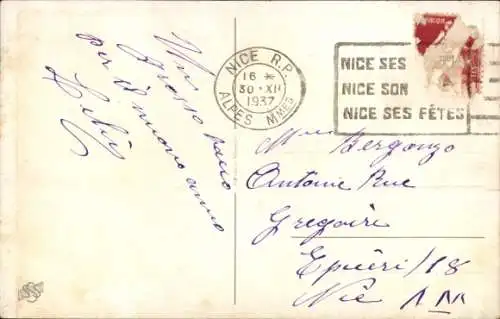 Un
grosso bacio
per il nuovo anno
NICE R.P.
16 *
30 - XII
1937
ALPES MMES
NICE SES
NICE SON
NICE SES FÊTES
Mme Bergonzo
Antonie Rue
Gregoire
18
Nice A M